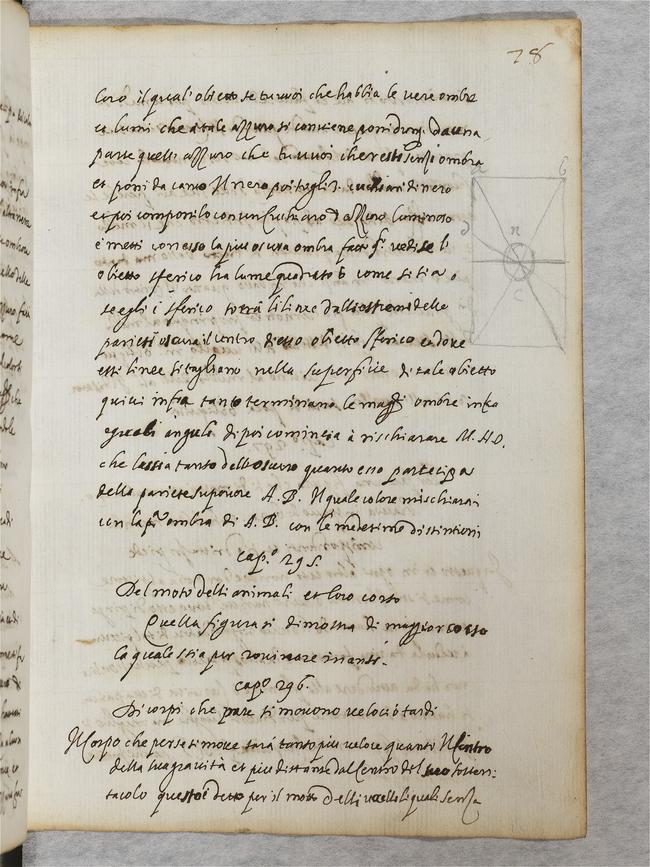 78
loro il qual' obietto se tu vuoi che habbia le vere ombre
et lumi che à tale azzuro si conviene poni da una
parte quello azzuro che tu vuoi che resti senza ombra
et poni da canto il nero poi togli 3. cuchiari di nero
et poi componilo con un Cuchiaro d'azzuro luminoso
e metti con esso la più oscura ombra fatto q.º vedi se l'
obietto sferico ha lume
se egli è sferico torrai li linee dalli estremi delle
parieti oscura il centro di esso obietto sferico et dove
esse linee si tagliano nella superficie di tale obietto
quivi infra tanto terminano le maggi ombre infra
equali angula di poi comincia à rischiarare N. HO.
che lascia tanto dell'oscuro quanto esso participa
della pariete superiore A. B. Il quale colore mischiarai
con la p.ª ombra di A. B. con le medesime distintioni
cap.º 295.
Del moto delli animali et loro corso
Quella figura si dimostra di maggior corso
la quale stia pur rovinare inanti.
cap.º 296.
Di corpi che parse si movono veloci ò tardi
Il corpo che per se si move sarà tanto più veloce quanto Il Centro
della sua gravità et più distante dal Centro del suo sosten:
tacolo questo è detto per il moto delli uccelli li quali senza
a
b
d
n
c